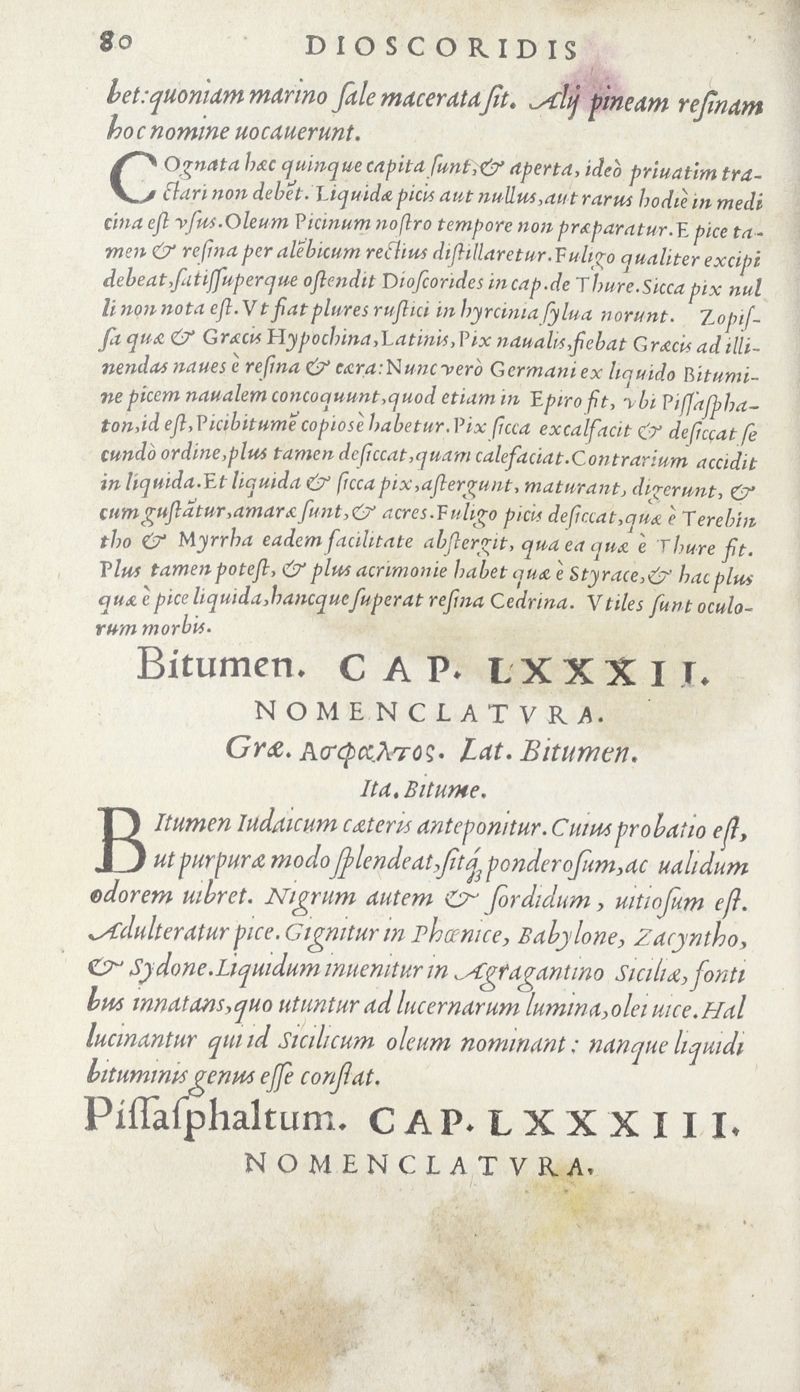 80 DIOSCORIDIS
bet: quoniam marino ſale macerata ſit. Alij pineam reſinam
hoc nomine uocauerunt.
COgnata hæc quinque capita ſunt, & aperta, ideò priuatim tra-
ctari non debēt. Liquidæ picis aut nullus, aut rarus hodiè in medi
cina eſt vſus. Oleum Picinum noſtro tempore non præparatur. E pice ta-
men & reſina per alēbicum rectius diſtillaretur. Fuligo qualiter excipi
debeat, ſatiſſuperque oſtendit Dioſcorides in cap. de Thure. Sicca pix nul
li non nota eſt. Vt fiat plures ruſtici in hyrcinia ſylua norunt. Zopiſ-
ſa quæ & Græcis Hypochina, Latinis, Pix naualis, fiebat Græcis ad illi-
nendas naues è reſina & cæra: Nunc verò Germani ex liquido Bitumi-
ne picem naualem concoquunt, quod etiam in Epiro fit, vbi Piſſaſpha-
ton, id eſt, Picibitumē copiosè habetur. Pix ſicca excalfacit & deſiccat ſe
cundò ordine, plus tamen deſiccat, quam calefaciat. Contrarium accidit
in liquida. Et liquida & ſicca pix, aſtergunt, maturant, digerunt, &
cum guſtātur, amaræ ſunt, & acres. Fuligo picis deſiccat, quæ è Terebin
tho & Myrrha eadem facilitate abſtergit, qua ea quæ è Thure fit.
Plus tamen poteſt, & plus acrimonie habet quæ è Styrace, & hac plus
quæ è pice liquida, hancque ſuperat reſina Cedrina. Vtiles ſunt oculo-
rum morbis.
Bitumen. CAP. LXXXII.
NOMENCLATVRA.
Græ. Ασφαλτος. Lat. Bitumen.
Ita. Bitume.
BItumen Iudaicum cæteris anteponitur. Cuius probatio eſt,
ut purpuræ modo ſplendeat, ſitq́ꝫ ponderoſum, ac ualidum
odorem uibret. Nigrum autem & ſordidum, uitioſum eſt.
Adulteratur pice. Gignitur in Phœnice, Babylone, Zacyntho,
& Sydone. Liquidum inuenitur in Agragantino Siciliæ, fonti
bus innatans, quo utuntur ad lucernarum lumina, olei uice. Hal
lucinantur qui id Sicilicum oleum nominant: nanque liquidi
bituminis genus eſſe conſtat.
Piſſaſphaltum. CAP. LXXXIII.
NOMENCLATVRA.